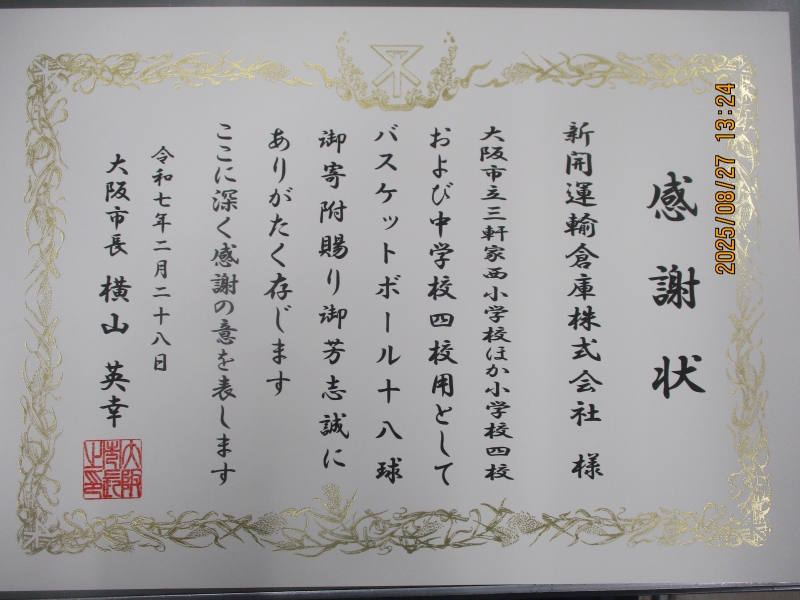 感謝状
新開運輸倉庫株式会社 様
大阪市立三軒家西小学校ほか小学校四校
および中学校四校用として
バスケットボール十八球
御寄附賜り御芳志誠に
ありがたく存じます
ここに深く感謝の意を表します
令和七年二月二十八日
大阪市長 横山 英幸
大阪市長之印
2025/08/27 13:24